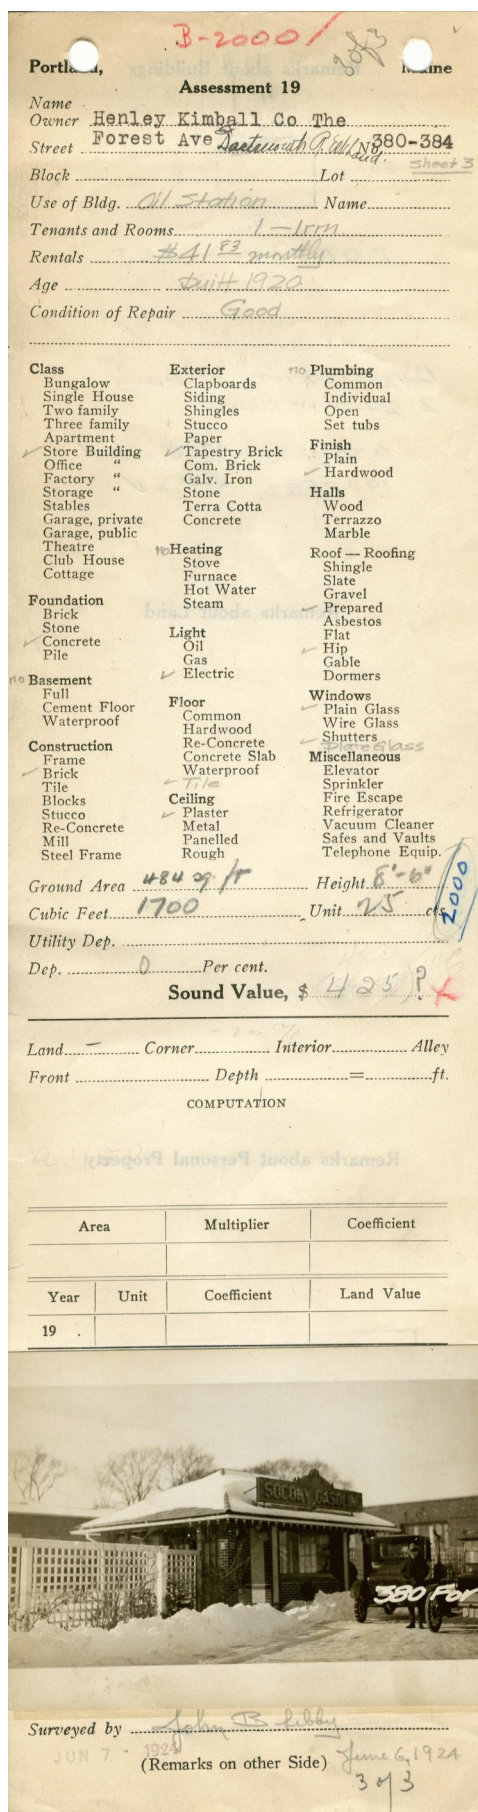 B-2000/
3 of 3
Portland, Maine
Assessment 19
Name
Owner Henley Kimball Co The
Street Forest Ave Dartmouth No 380-384
Sheet 3
Block Lot
Use of Bldg. Oil Station Name
Tenants and Rooms 1 - 1rm
Rentals $41 83 monthly
Age built 1920
Condition of Repair Good
Class
Bungalow
Single House
Two family
Three family
Apartment
✓ Store Building
Office "
Factory "
Storage "
Stables
Garage, private
Garage, public
Theatre
Club House
Cottage
Foundation
Brick
Stone
✓ Concrete
Pile
no Basement
Full
Cement Floor
Waterproof
Construction
Frame
✓ Brick
Tile
Blocks
Stucco
Re-Concrete
Mill
Steel Frame
Exterior
Clapboards
Siding
Shingles
Stucco
Paper
✓ Tapestry Brick
Com. Brick
Galv. Iron
Stone
Terra Cotta
Concrete
no Heating
Stove
Furnace
Hot Water
Steam
Light
Oil
Gas
✓ Electric
Floor
Common
Hardwood
Re-Concrete
Concrete Slab
Waterproof
✓ Tile
Ceiling
✓ Plaster
Metal
Panelled
Rough
no Plumbing
Common
Individual
Open
Set tubs
Finish
Plain
✓ Hardwood
Halls
Wood
Terrazzo
Marble
Roof — Roofing
Shingle
Slate
Gravel
✓ Prepared
Asbestos
Flat
✓ Hip
Gable
Dormers
Windows
✓ Plain Glass
Wire Glass
✓ Shutters
Plate Glass
Miscellaneous
Elevator
Sprinkler
Fire Escape
Refrigerator
Vacuum Cleaner
Safes and Vaults
Telephone Equip.
Ground Area 484 sq. ft Height 8'-6"
Cubic Feet 1700 Unit 25 cts.
2000
Utility Dep.
Dep. 0 Per cent.
Sound Value, $ 425 ? x
Land — Corner Interior Alley
Front Depth = ft.
COMPUTATION
Remarks about Personal Property
Area Multiplier Coefficient
Year Unit Coefficient Land Value
19 .
SOCONY GASOLINE
380 For
Surveyed by John B Libby
JUN 7 - 1924
(Remarks on other Side) June 6, 1924
3 of 3